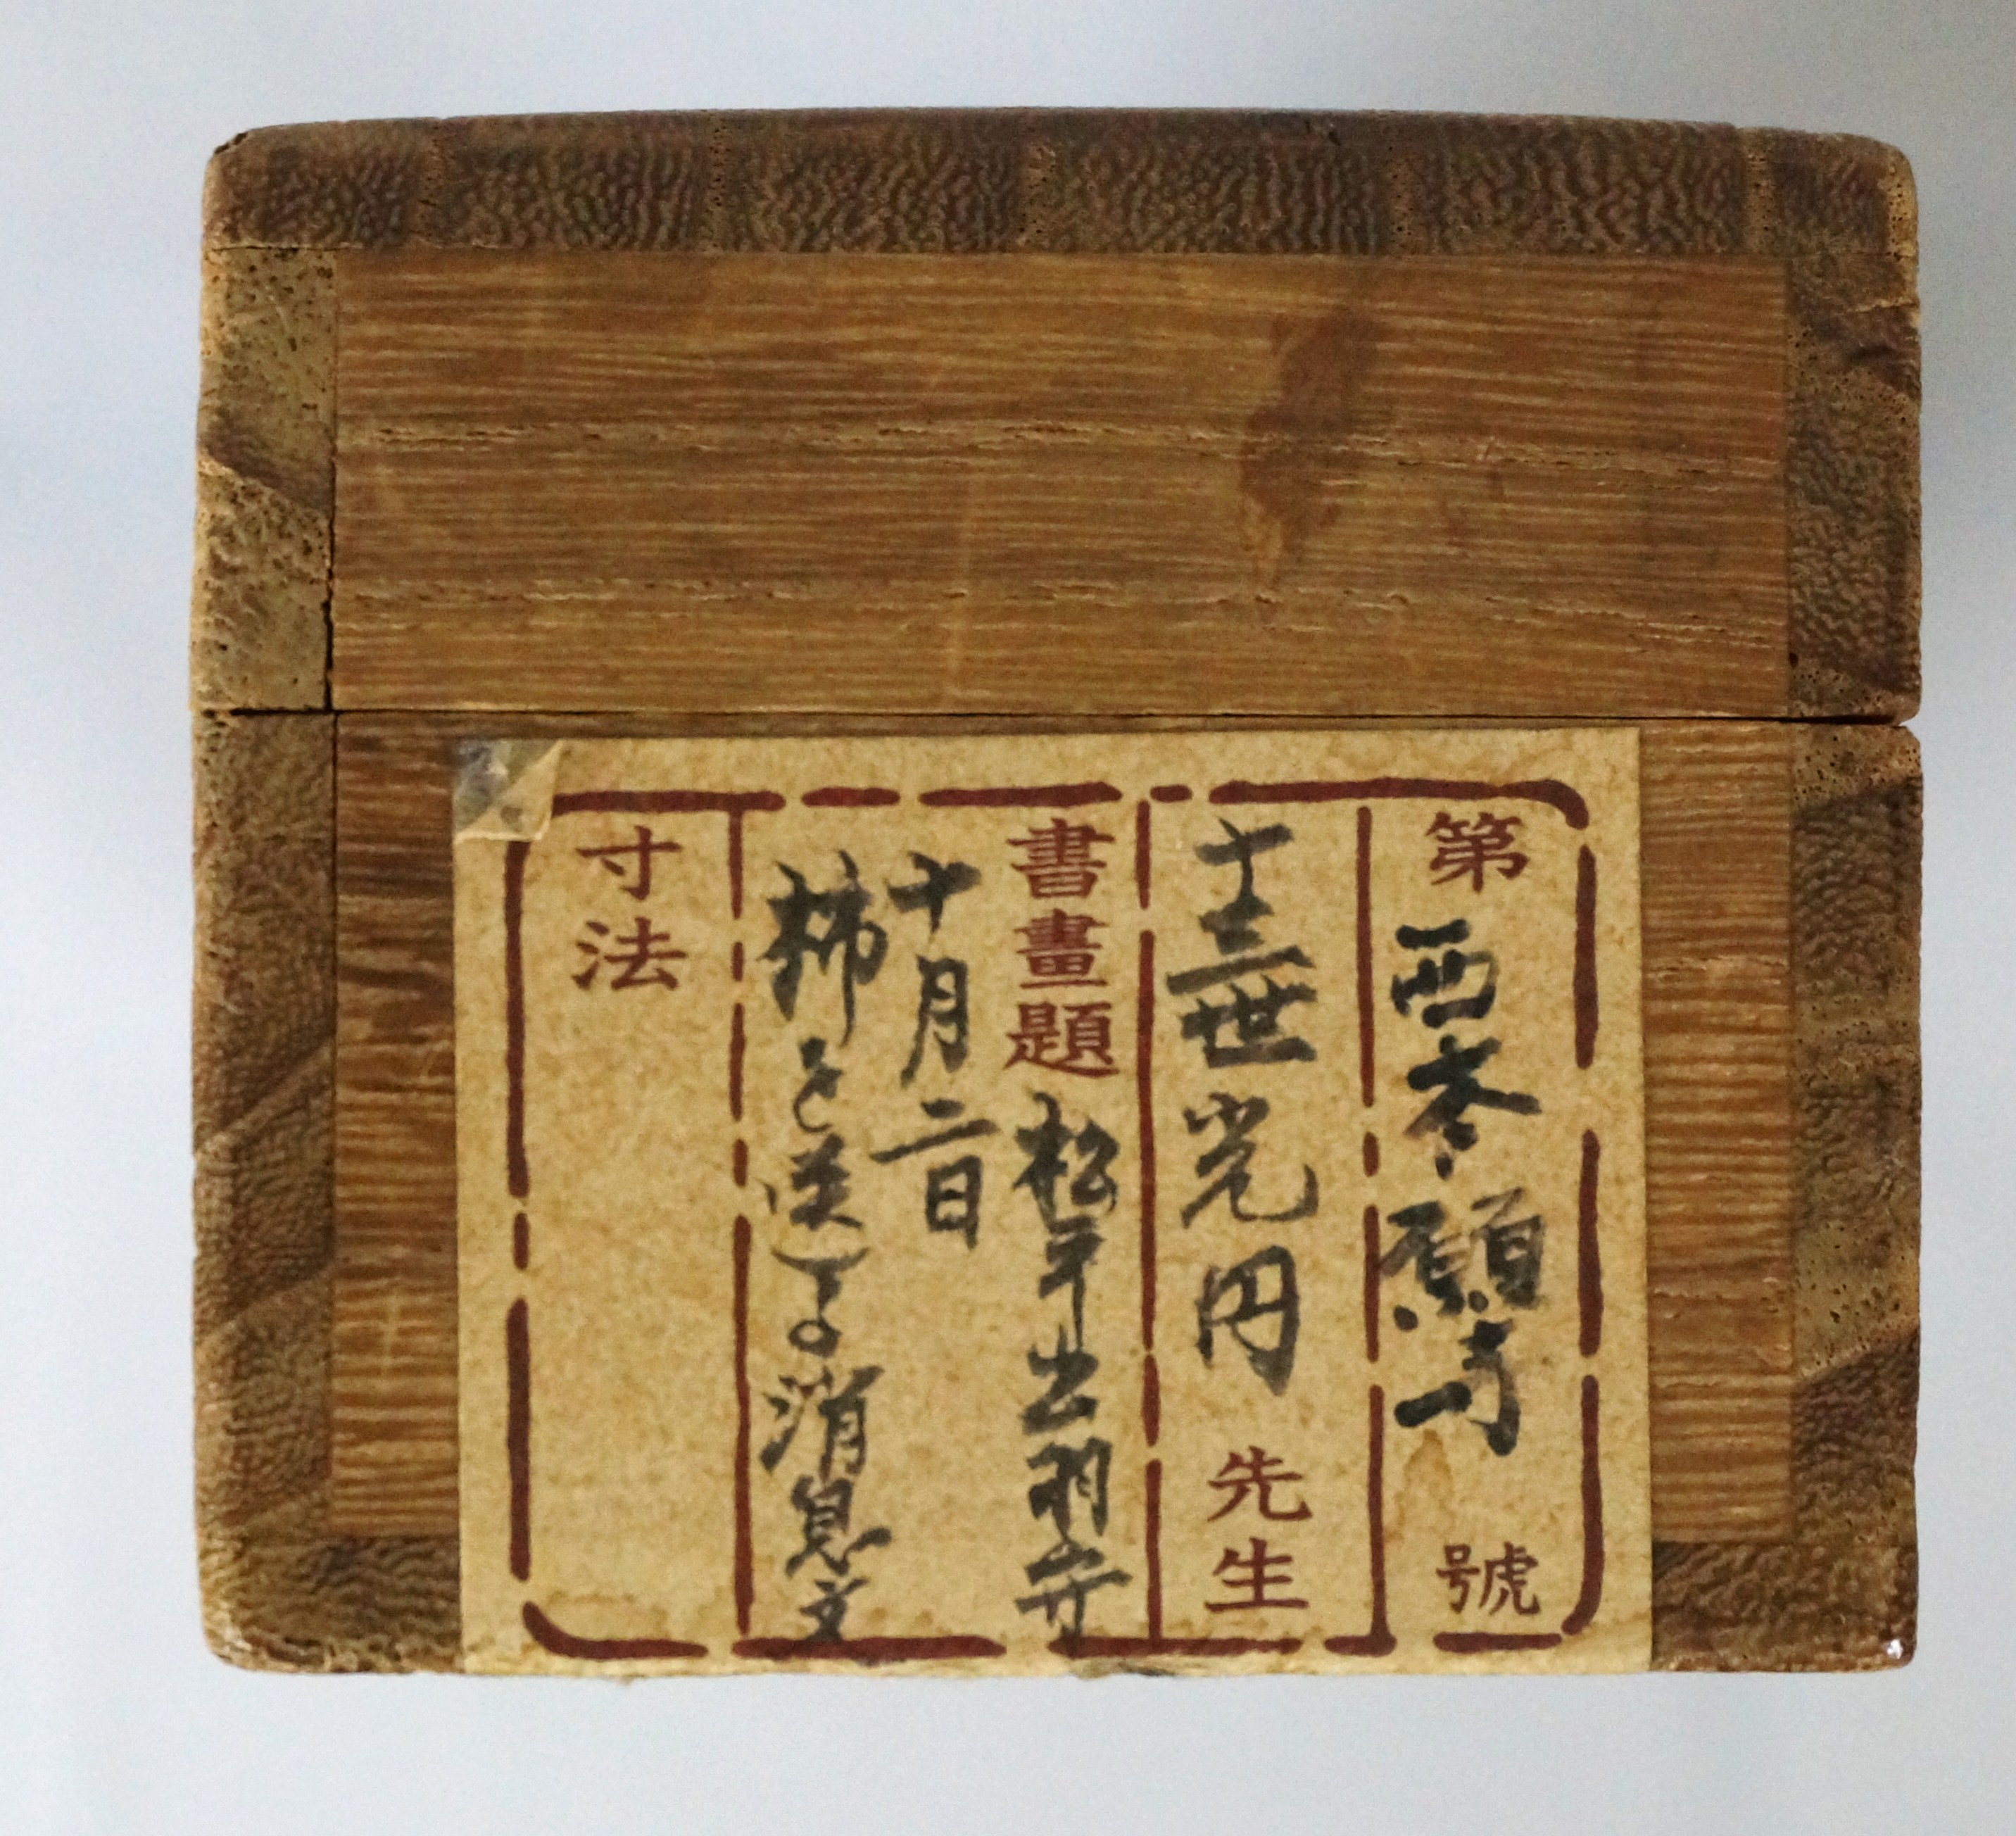 第 西本願寺 號
十三世光円 先生
書畫題 松平出羽守
十月二日
柿を送る消息文
寸法